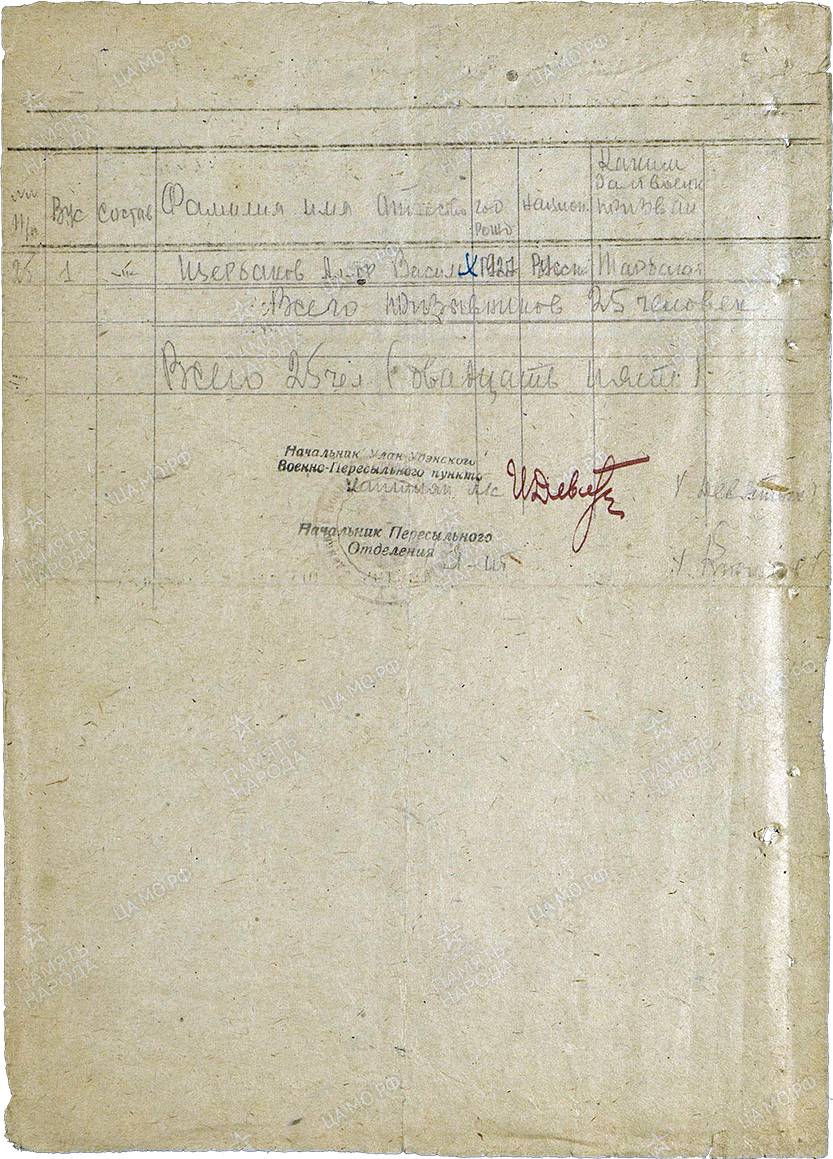 №№ п/п ВУС Состав Фамилия имя Отчество год рожд Национ. Каким Райвоен призван
25 1 Щербаков Васил 1927 Русск
Всего призывников 25 человек
Всего 25 чел (двадцать пять)
Начальник Улан-Удэнского
Военно-Пересыльного пункта
Капитан
Начальник Пересыльного
Отделения
ПАМЯТЬ НАРОДА
ЦАМО.РФ